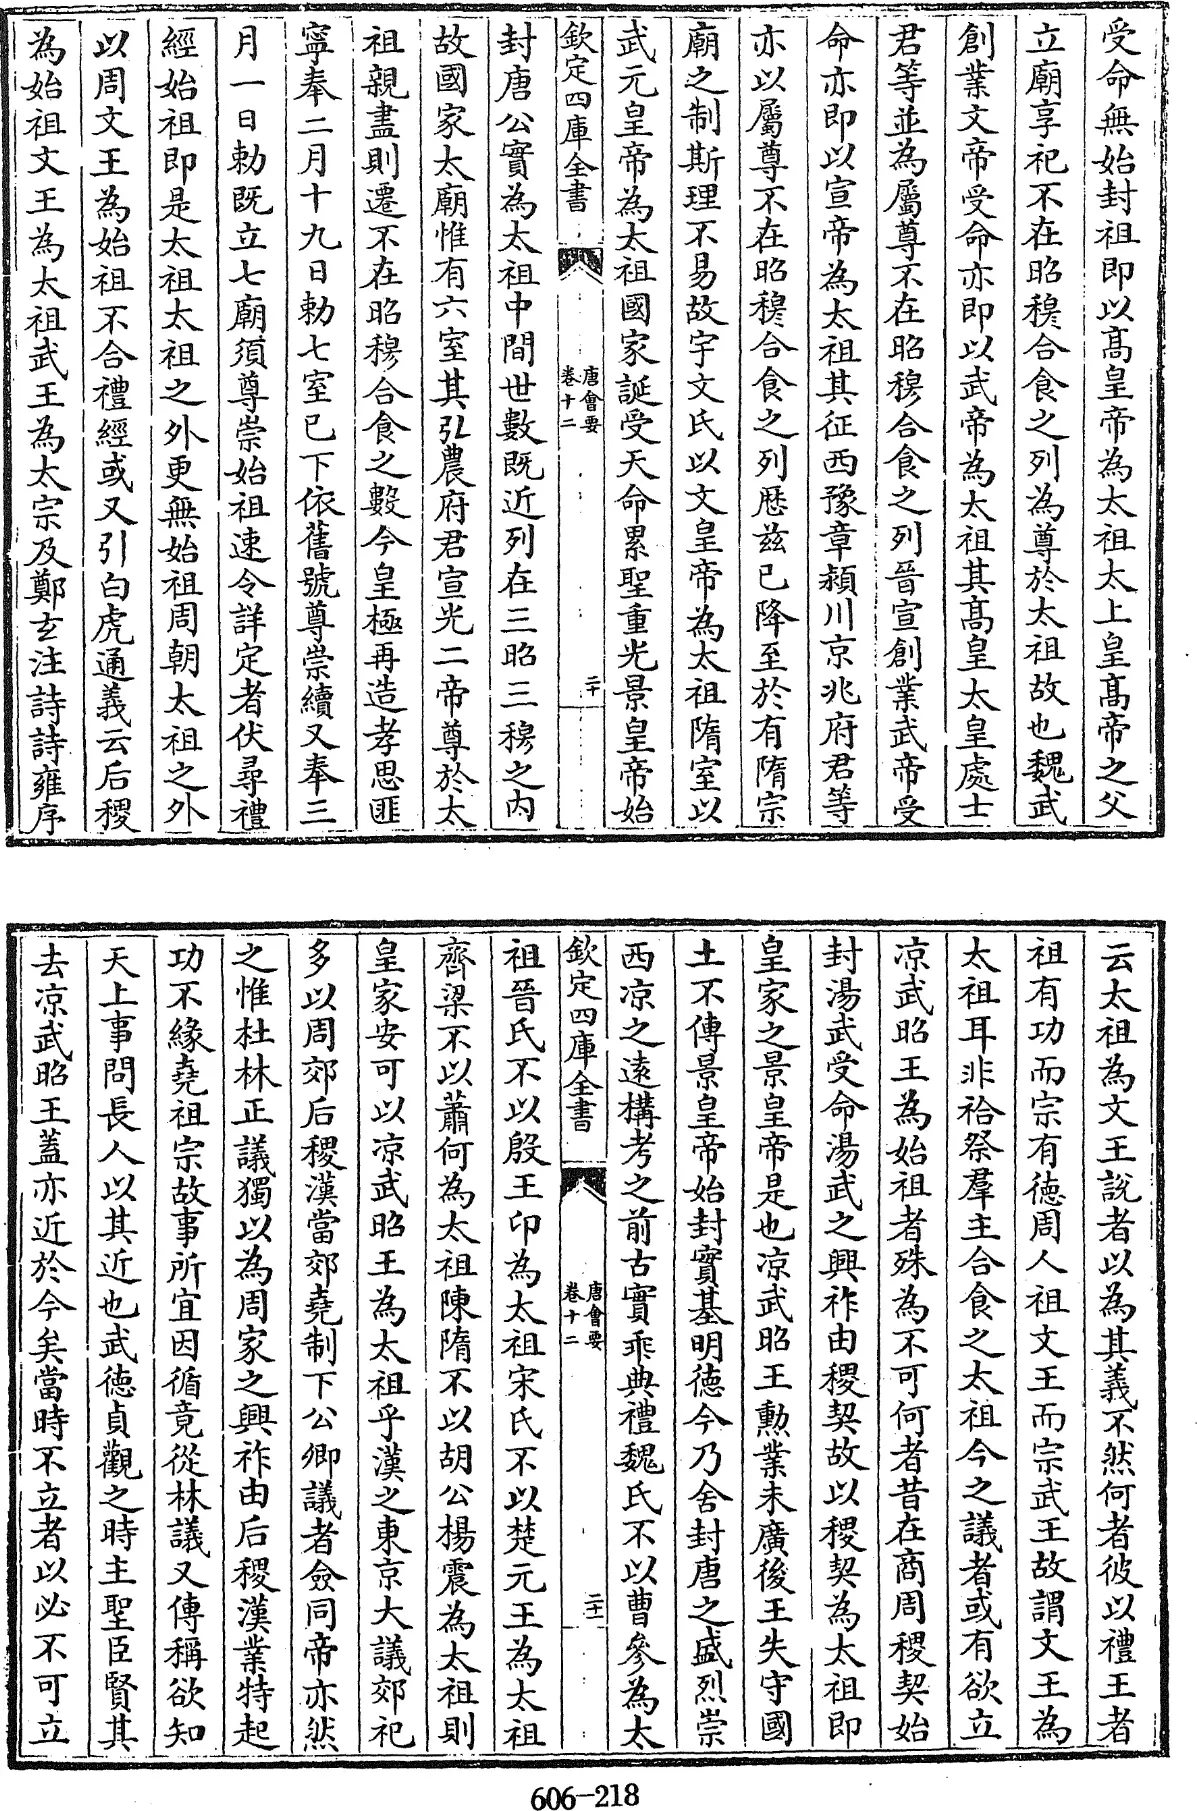 受命無始封祖即以髙皇帝為太祖太上皇髙帝之父
立廟享祀不在昭穆合食之列為尊於太祖故也魏武
創業文帝受命亦即以武帝為太祖其髙皇太皇處士
君等並為屬尊不在昭穆合食之列晉宣創業武帝受
命亦即以宣帝為太祖其征西豫章潁川京兆府君等
亦以屬尊不在昭穆合食之列歴兹已降至於有隋宗
廟之制斯理不易故宇文氏以文皇帝為太祖隋室以
武元皇帝為太祖國家誕受天命累聖重光景皇帝始
欽定四庫全書
唐會要
卷十二
二十
封唐公實為太祖中間世數既近列在三昭三穆之内
故國家太廟惟有六室其弘農府君宣光二帝尊於太
祖親盡則遷不在昭穆合食之數今皇極再造孝思匪
寧奉二月十九日勅七室已下依舊號尊崇續又奉三
月一日勅既立七廟須尊崇始祖速令詳定者伏尋禮
經始祖即是太祖太祖之外更無始祖周朝太祖之外
以周文王為始祖不合禮經或又引白虎通義云后稷
為始祖文王為太祖武王為太宗及鄭玄注詩詩雍序
云太祖為文王說者以為其義不然何者彼以禮王者
祖有功而宗有徳周人祖文王而宗武王故謂文王為
太祖耳非祫祭羣主合食之太祖今之議者或有欲立
凉武昭王為始祖者殊為不可何者昔在商周稷契始
封湯武受命湯武之興祚由稷契故以稷契為太祖即
皇家之景皇帝是也凉武昭王勲業未廣後王失守國
土不傳景皇帝始封實基明徳今乃舍封唐之盛烈崇
西凉之逺構考之前古實乖典禮魏氏不以曹參為太
欽定四庫全書
唐會要
卷十二
二十一
祖晉氏不以殷王卬為太祖宋氏不以楚元王為太祖
齊梁不以蕭何為太祖陳隋不以胡公楊震為太祖則
皇家安可以凉武昭王為太祖乎漢之東京大議郊祀
多以周郊后稷漢當郊堯制下公卿議者僉同帝亦然
之惟杜林正議獨以為周家之興祚由后稷漢業特起
功不緣堯祖宗故事所宜因循竟從林議又傳稱欲知
天上事問長人以其近也武徳貞觀之時主聖臣賢其
去凉武昭王蓋亦近於今矣當時不立者以必不可立
606-218